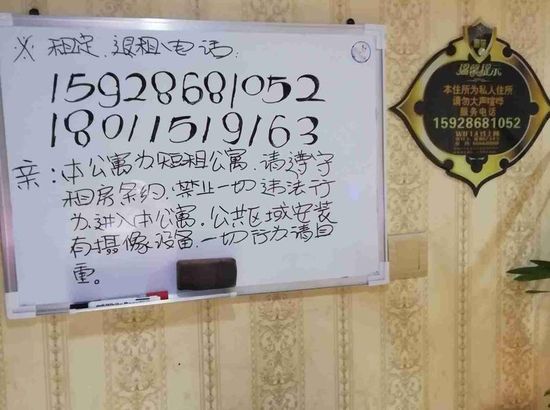 ※ 租定、退租电话:
15928681052
18011519163
亲:本公寓为短租公寓,请遵守
租房条约,禁止一切违法行
为进入本公寓,公共区域安装
有摄像设备,一切行为请自
重。
温馨提示
本住所为私人住所
请勿大声喧哗
服务电话
15928681052